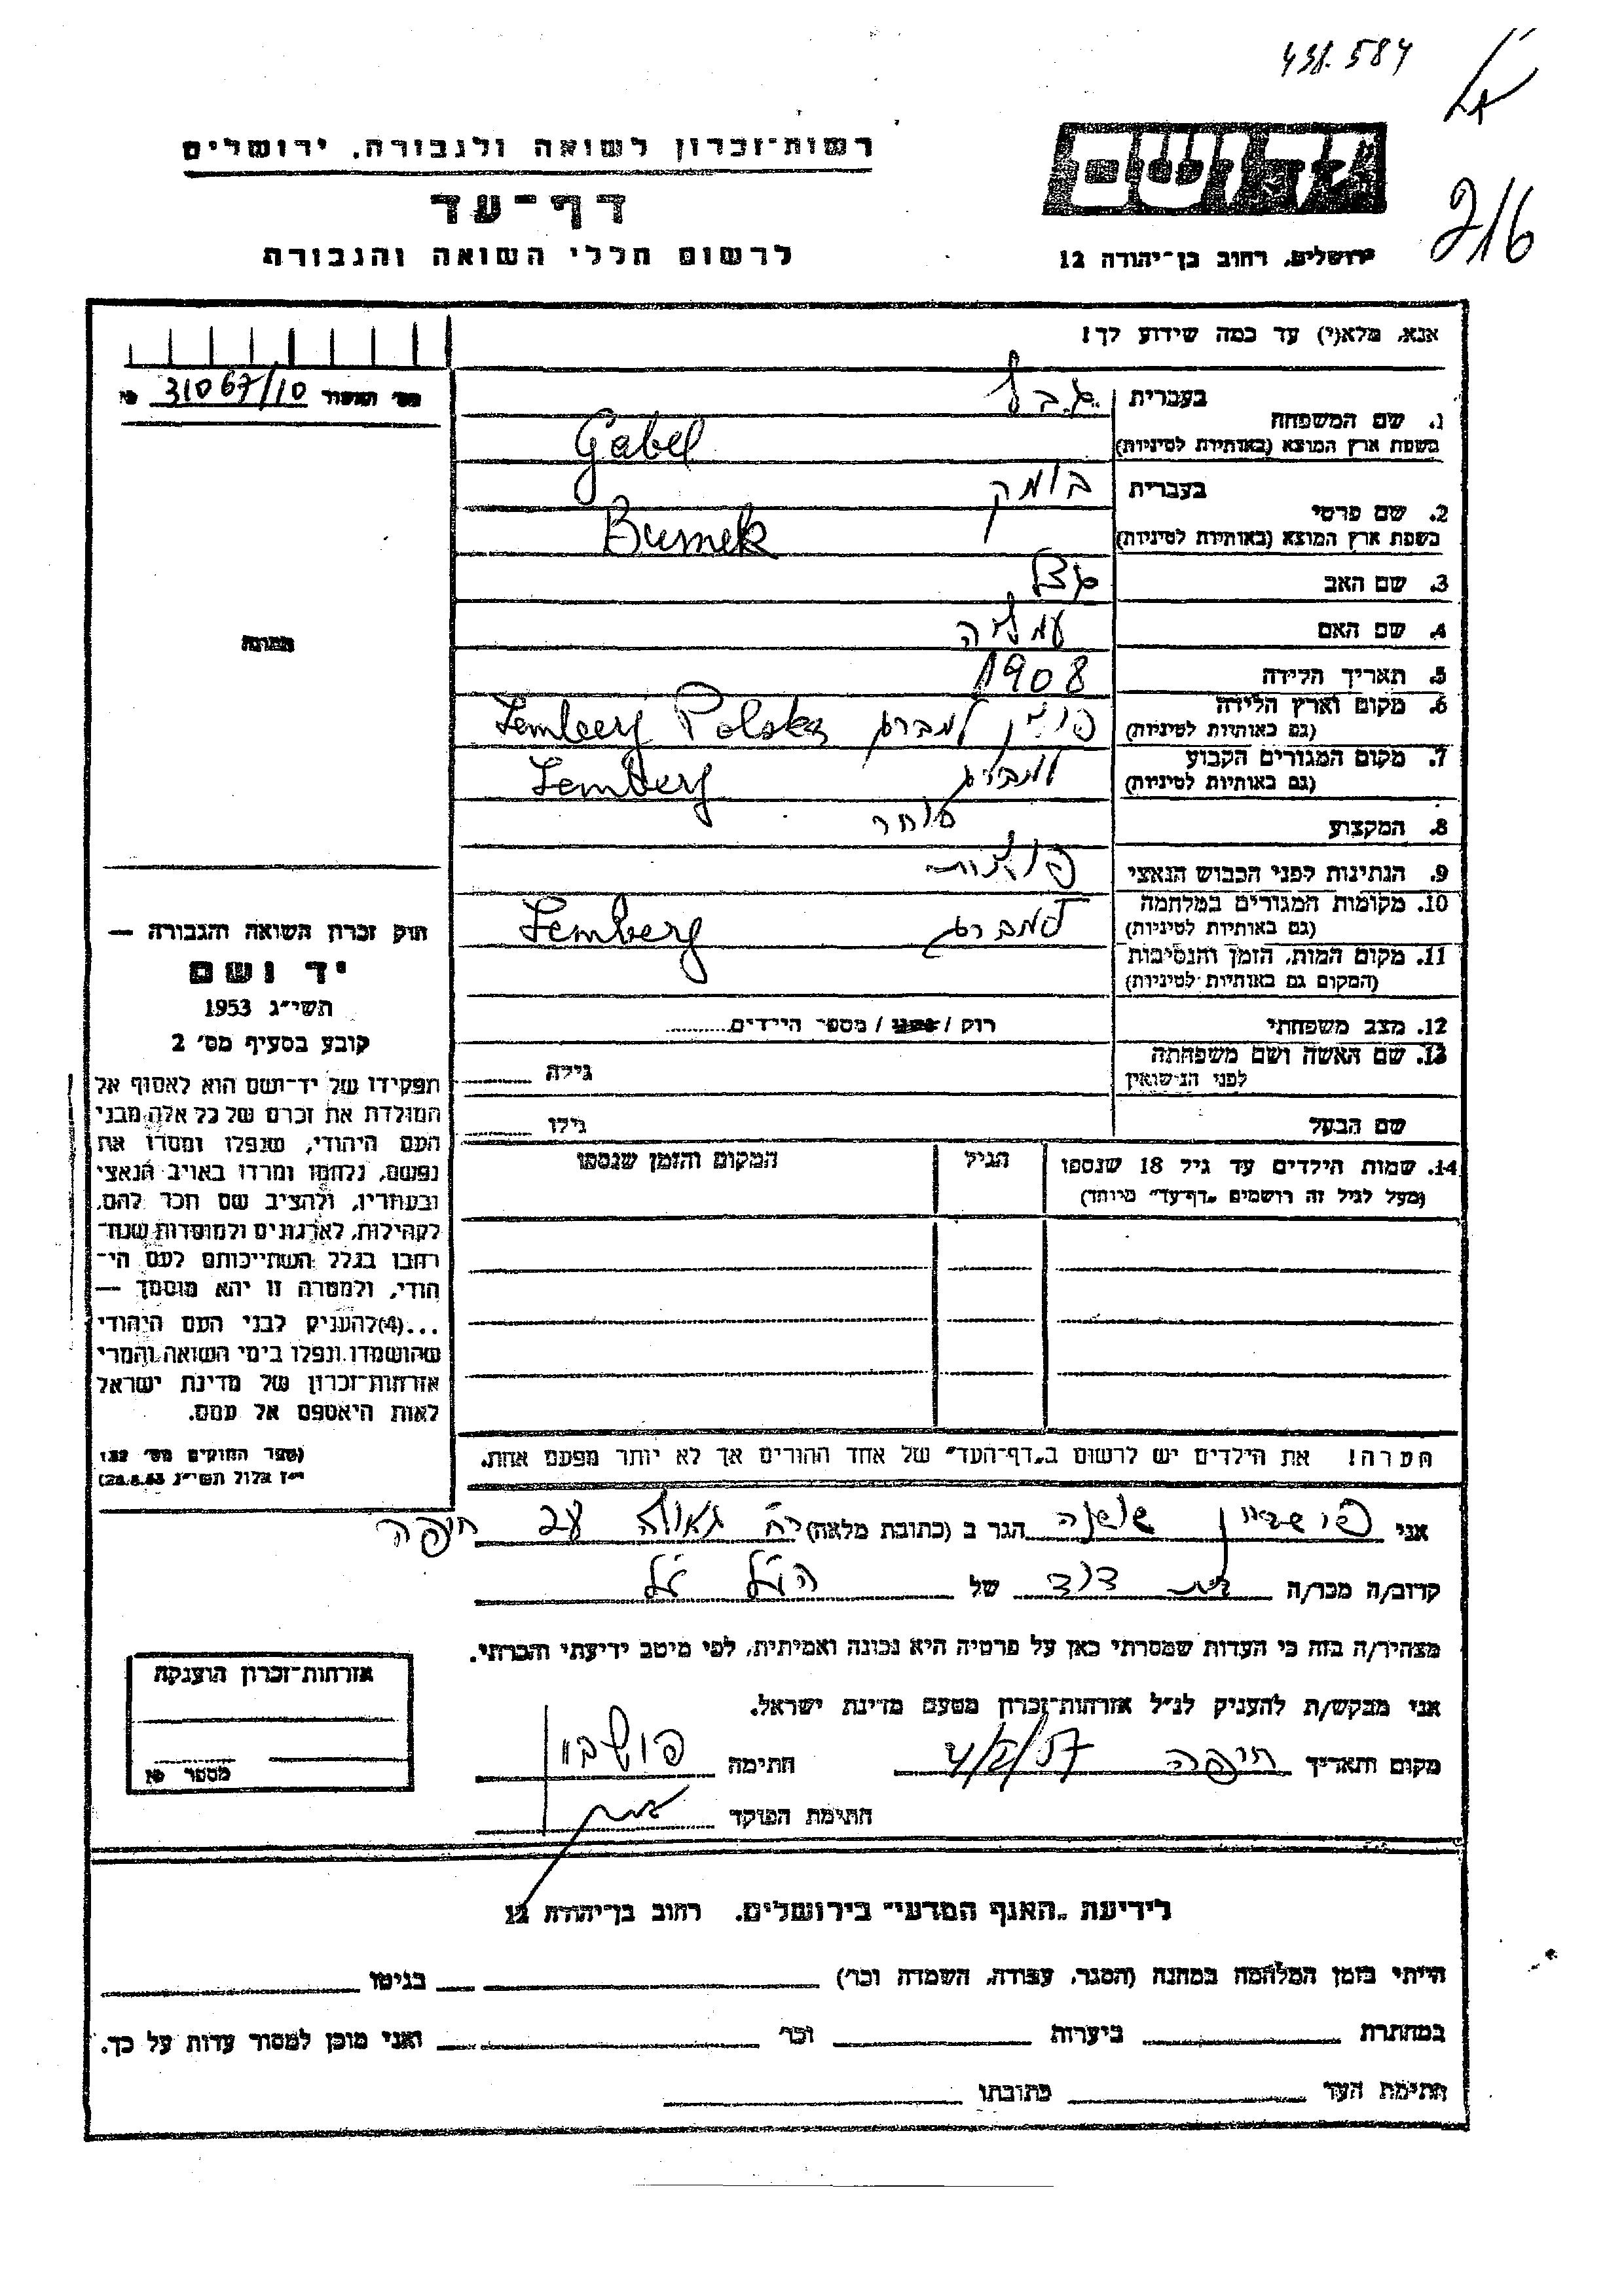 438.584
216
רשות-זכרון לשואה ולגבורה, ירושלים
דף-עד
לרשום חללי השואה והגבורה
ירושלים, רחוב בן-יהודה 12
אנא, מלא(י) עד כמה שידוע לך!
מס' תעשור 31067/10
1. שם המשפחה
בעברית גבל
בשפת ארץ המוצא (באותיות לטיניות) Gabel
2. שם פרטי
בעברית בומק
בשפת ארץ המוצא (באותיות לטיניות) Bumek
3. שם האב
4. שם האם עמליה
5. תאריך הלידה 1908
6. מקום וארץ הלידה
(גם באותיות לטיניות) פולין למברג Lemberg Polska
7. מקום המגורים הקבוע
(גם באותיות לטיניות) למברג Lemberg
8. המקצוע סוחר
9. הנתינות לפני הכבוש הנאצי פולנית
10. מקומות המגורים במלחמה
(גם באותיות לטיניות) למברג Lemberg
11. מקום המות, הזמן והנסיבות
(המקום גם באותיות לטיניות)
12. מצב משפחתי רוק / נשוי / מספר הילדים
13. שם האשה ושם משפחתה
לפני הנישואין גילה
שם הבעל גילו
14. שמות הילדים עד גיל 18 שנספו הגיל המקום והזמן שנספו
(מעל לגיל זה רושמים "דף-עד" מיוחד)
הערה! את הילדים יש לרשום ב"דף-העד" של אחד ההורים אך לא יותר מפעם אחת.
תמונה
חוק זכרון השואה והגבורה —
יד ושם
תשי"ג 1953
קובע בסעיף מס' 2
תפקידו של יד-ושם הוא לאסוף אל
המולדת את זכרם של כל אלה מבני
העם היהודי, שנפלו ומסרו את
נפשם, נלחמו ומרדו באויב הנאצי
ובעוזריו, ולהציב שם וזכר להם,
לקהילות, לארגונים ולמוסדות שנח-
רבו בגלל השתייכותם לעם הי-
הודי, ולמטרה זו יהא מוסמך —
...(4)להעניק לבני העם היהודי
שהושמדו ונפלו בימי השואה והמרי
אזרחות-זכרון של מדינת ישראל
לאות היאספם אל עמם.
(ספר החוקים מס' 132
י"ז אלול תשי"ג 28.8.53)
אני שושנה הגר ב (כתובת מלאה) רח' גאולה חיפה
קרוב/ה מכר/ה בת דוד של הנ"ל
מצהיר/ה בזה כי העדות שמסרתי כאן על פרטיה היא נכונה ואמיתית, לפי מיטב ידיעתי והכרתי.
אני מבקש/ת להעניק לנ"ל אזרחות-זכרון מטעם מדינת ישראל.
מקום ותאריך חיפה חתימה
חתימת הפוקד
אזרחות-זכרון הוענקה
מספר
לידיעת "האגף המדעי" בירושלים. רחוב בן-יהודה 12
הייתי בזמן המלחמה במחנה (הסגר, עבודה, השמדה וכו') בגיטו
במחתרת ביערות וכו' ואני מוכן למסור עדות על כך.
חתימת העד כתובתו